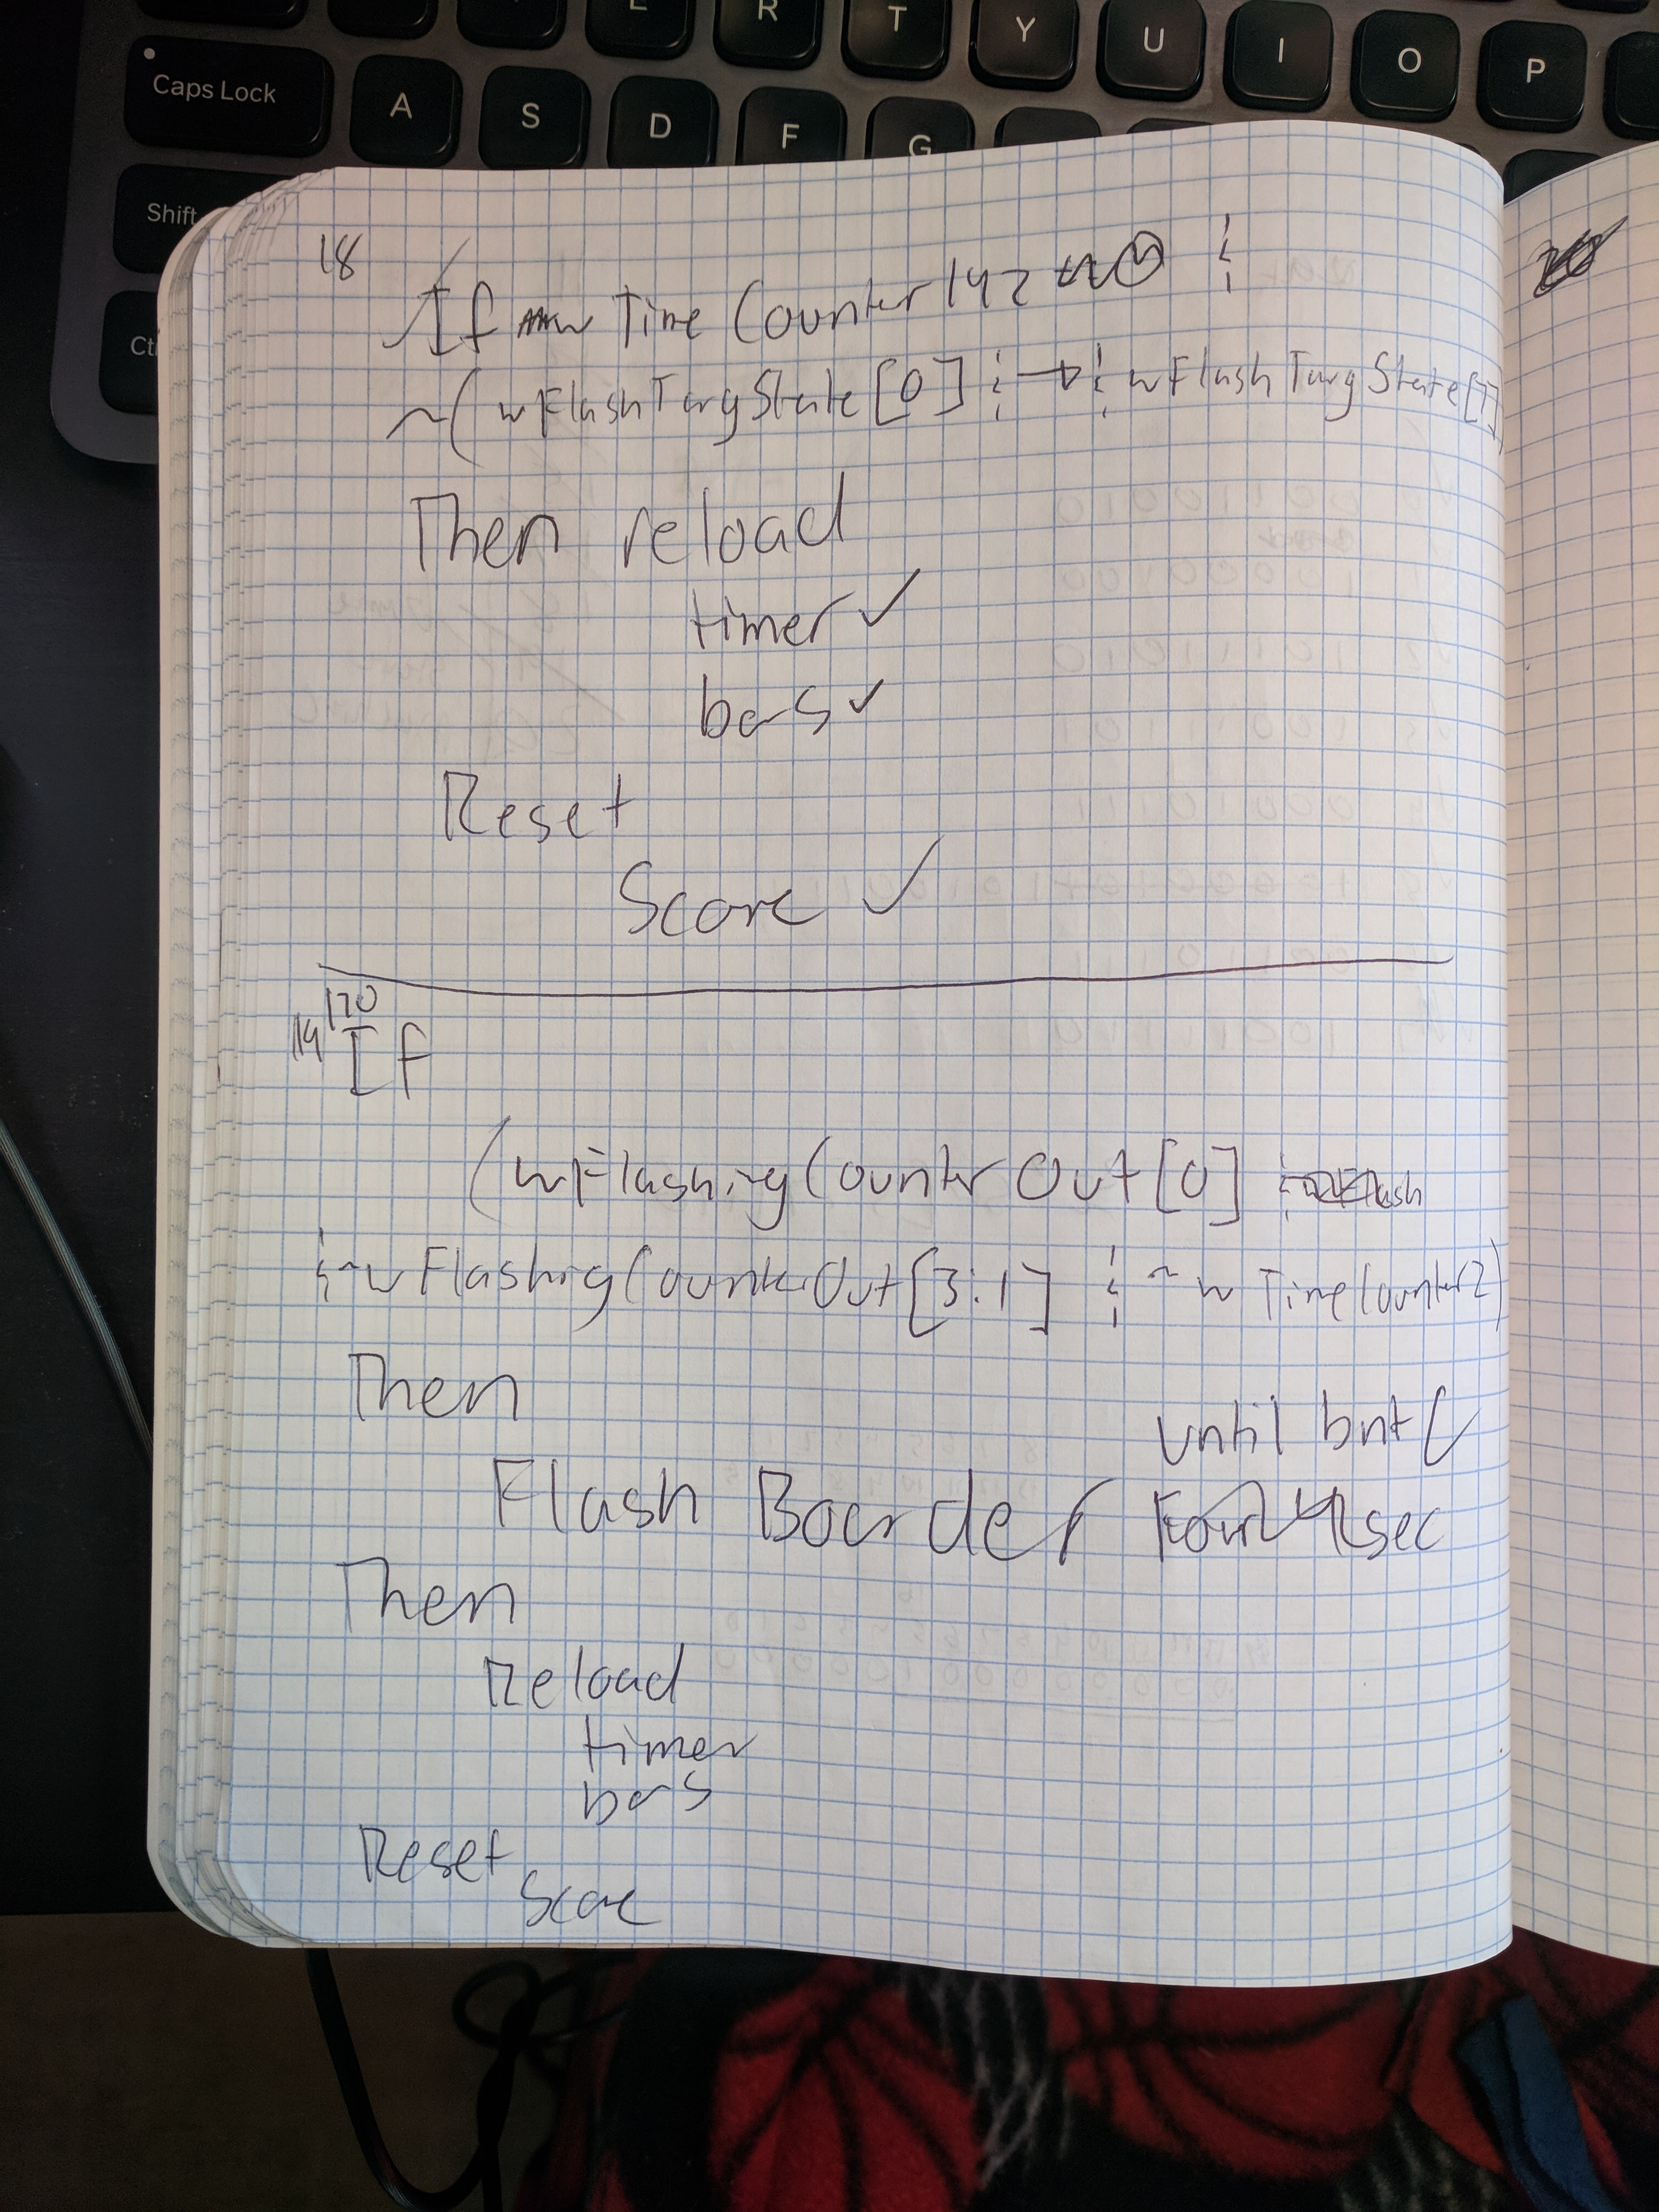 E R T Y U I O P
Caps Lock A S D F G
Shift
Ct
18
If w Time Counter 142
~( wFlashTargState[0] ¦ → ¦ wFlashTargState[7]
Then reload
timer ✓
bars ✓
Reset
Score ✓
19 120
If
(wFlashingCounterOut[0] ¦
¦ ~wFlashingCounterOut[3:1] ¦ ~wTimeCounter2)
Then
until bnt C
Flash Boarder For 4 sec
Then
Reload
timer
bars
Reset
Score